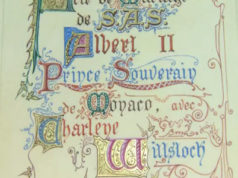 de Mariage
de S.A.S
Albert II
Prince Souverain
de Monaco, avec
Charlene
Wittstock